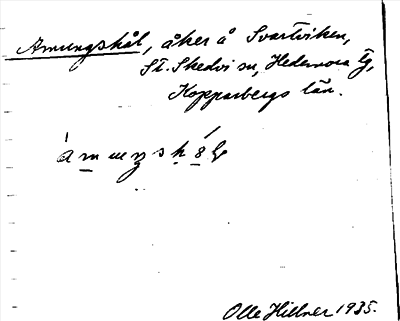 Amungshål, åker å Svartviken,
St. Skedvi sn, Hedemora tg,
Kopparbergs län.
Olle Hillner 1935.